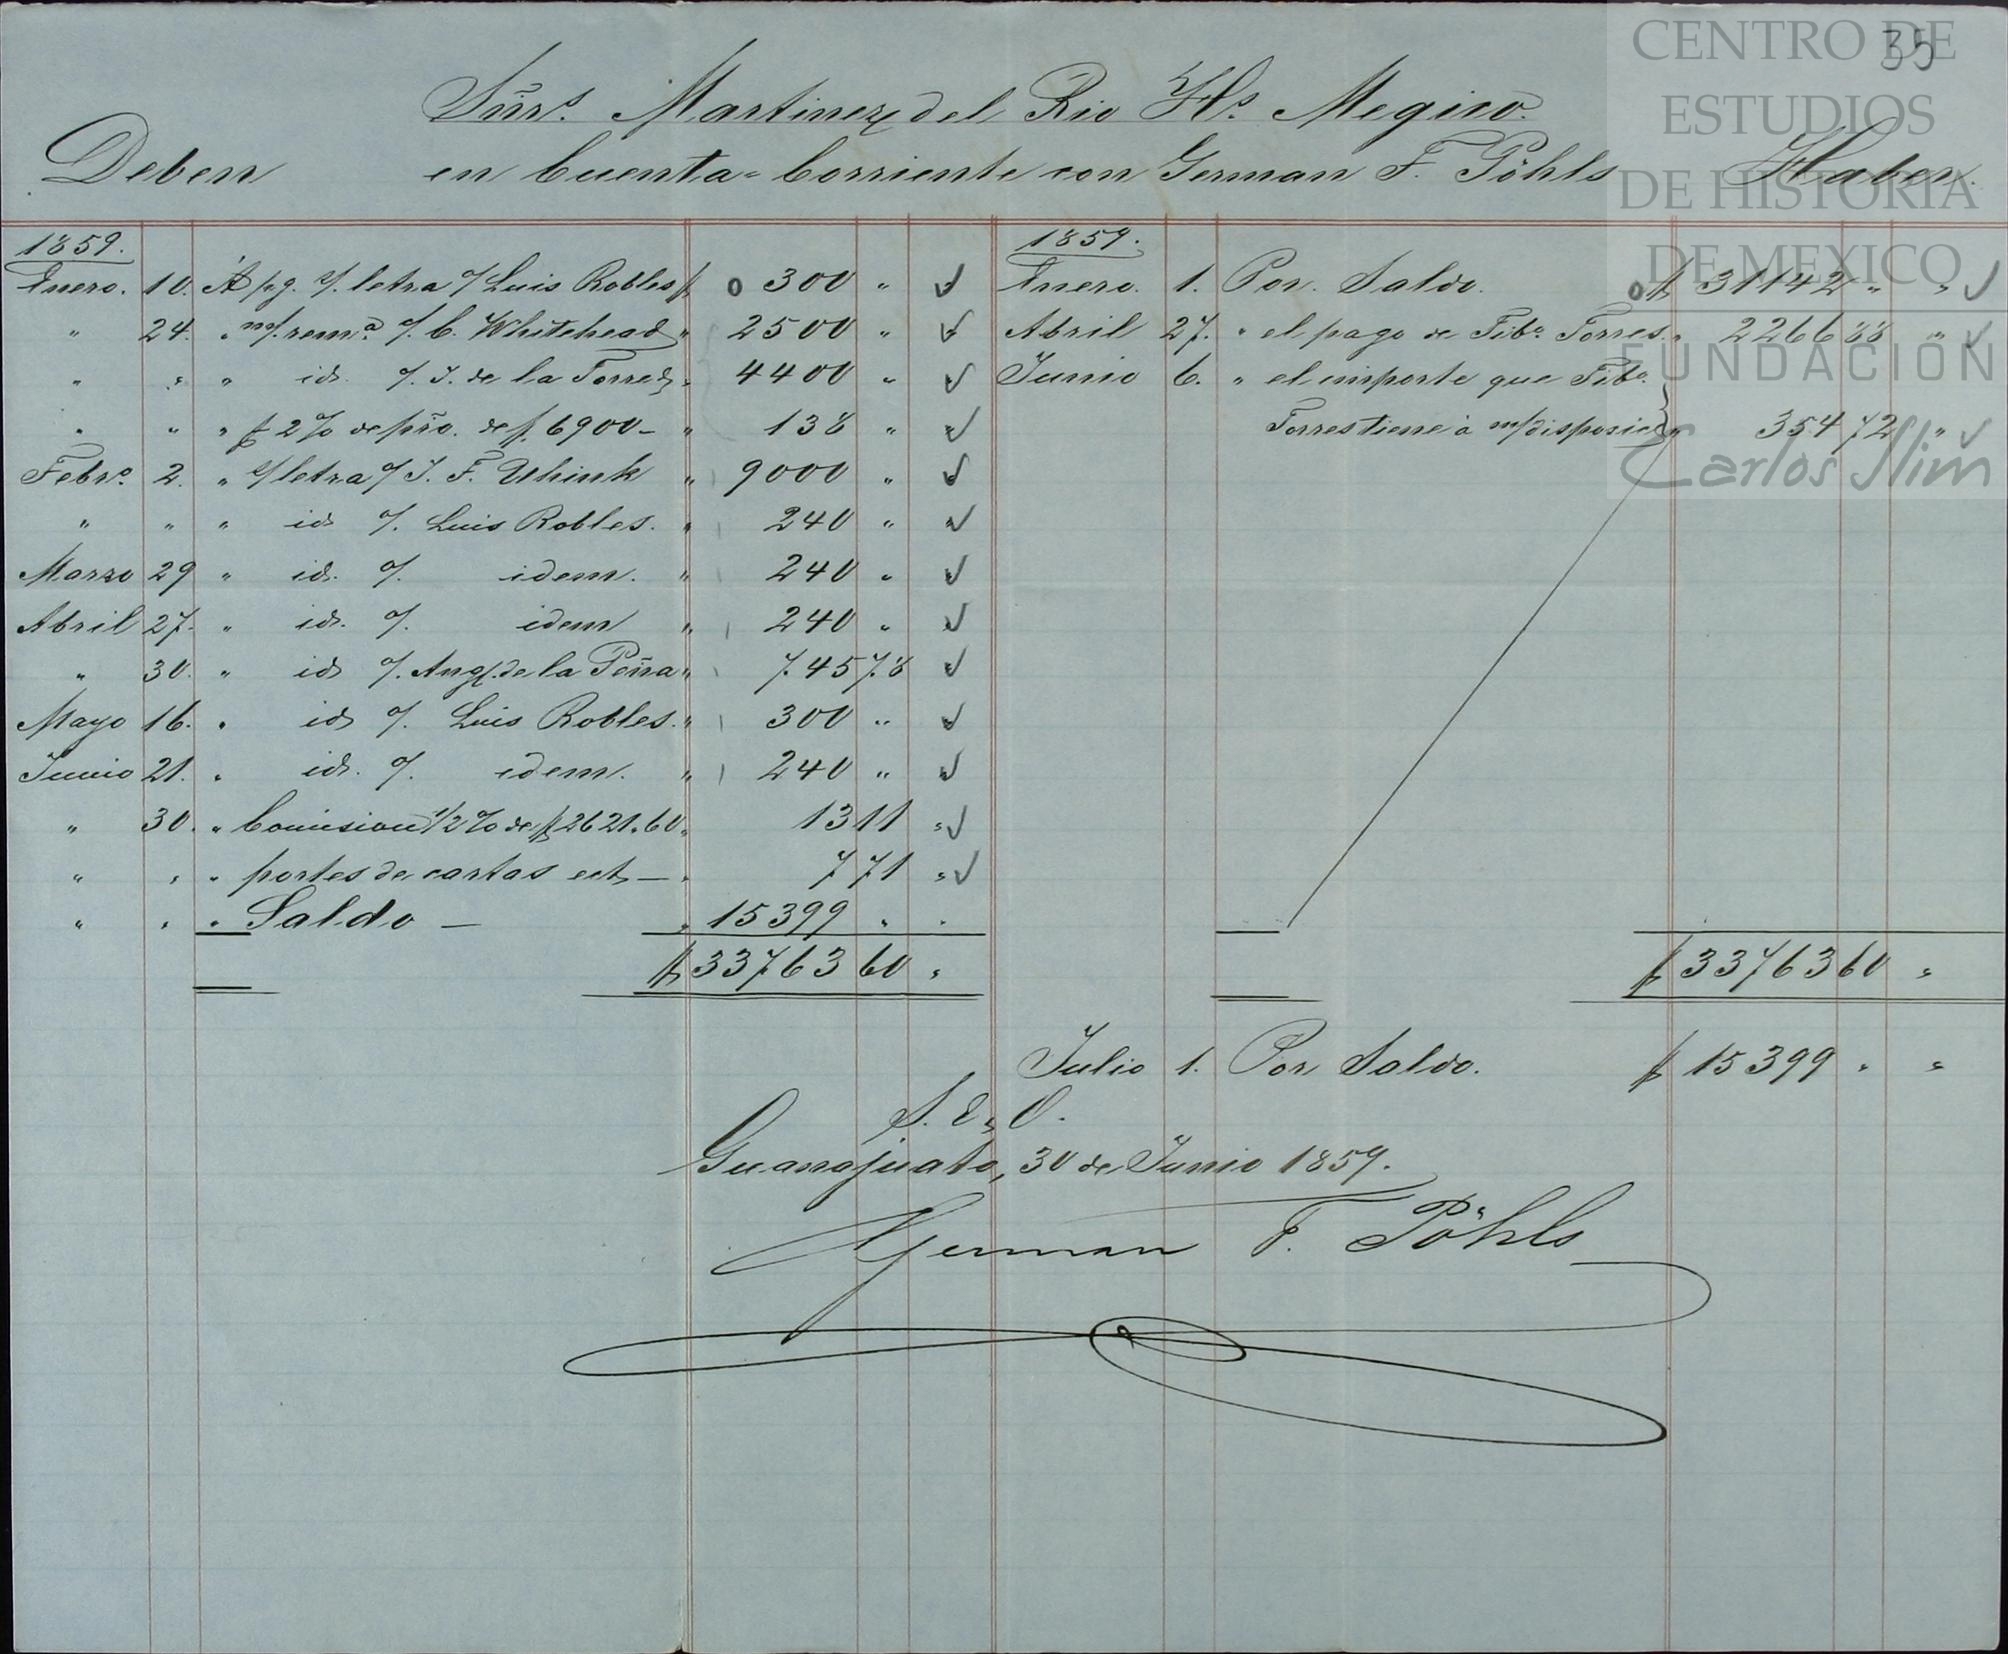 35
CENTRO DE
ESTUDIOS
DE HISTORIA
DE MEXICO
FUNDACIÓN
Carlos Slim
Sñrs. Martinez del Rio Hs. Megico.
Deben en Cuenta=Corriente con German F. Pöhls Haben.
1859.
Enero. 10. Á pg. s/. letra o/ Luis Robles $ 0 300 "
" 24. " m/. remª. o/. C. Whitehead " 2500 "
" " " id. o/. I. de la Torre " 4400 "
" " " $ 2 % de prio. de $. 6900 — " 138 " "
Febro. 2. " s/ letra o/ I. F. Uhink " 9000 " "
" " " id o/. Luis Robles. " 240 " "
Marzo 29 " id. o/. idem. " 240 " "
Abril 27. " id. o/. idem " 240 " "
" 30. " id o/. Ang. de la Peña " 745 78 "
Mayo 16. " id o/. Luis Robles. " 300 " "
Junio 21. " id. o/. idem. " 240 " "
" 30. " Comision 1/2 % de $ 2621.60 " 13 11 "
" " " portes de cartas ect — " 7 71 "
" " " Saldo — " 15399 " "
$ 33763 60 "
1859.
Enero. 1. Por Saldo. 0 $ 31142 " "
Abril 27. " el pago de Tibo. Torres. " 2266 88 "
Junio 6. " el importe que Tibo.
Torres tiene à m/ disposic " 354 72 "
$ 33763 60 "
Julio 1. Por Saldo. $ 15399 " "
S. E. ú O.
Guanajuato, 30 de Junio 1859.
German F. Pöhls